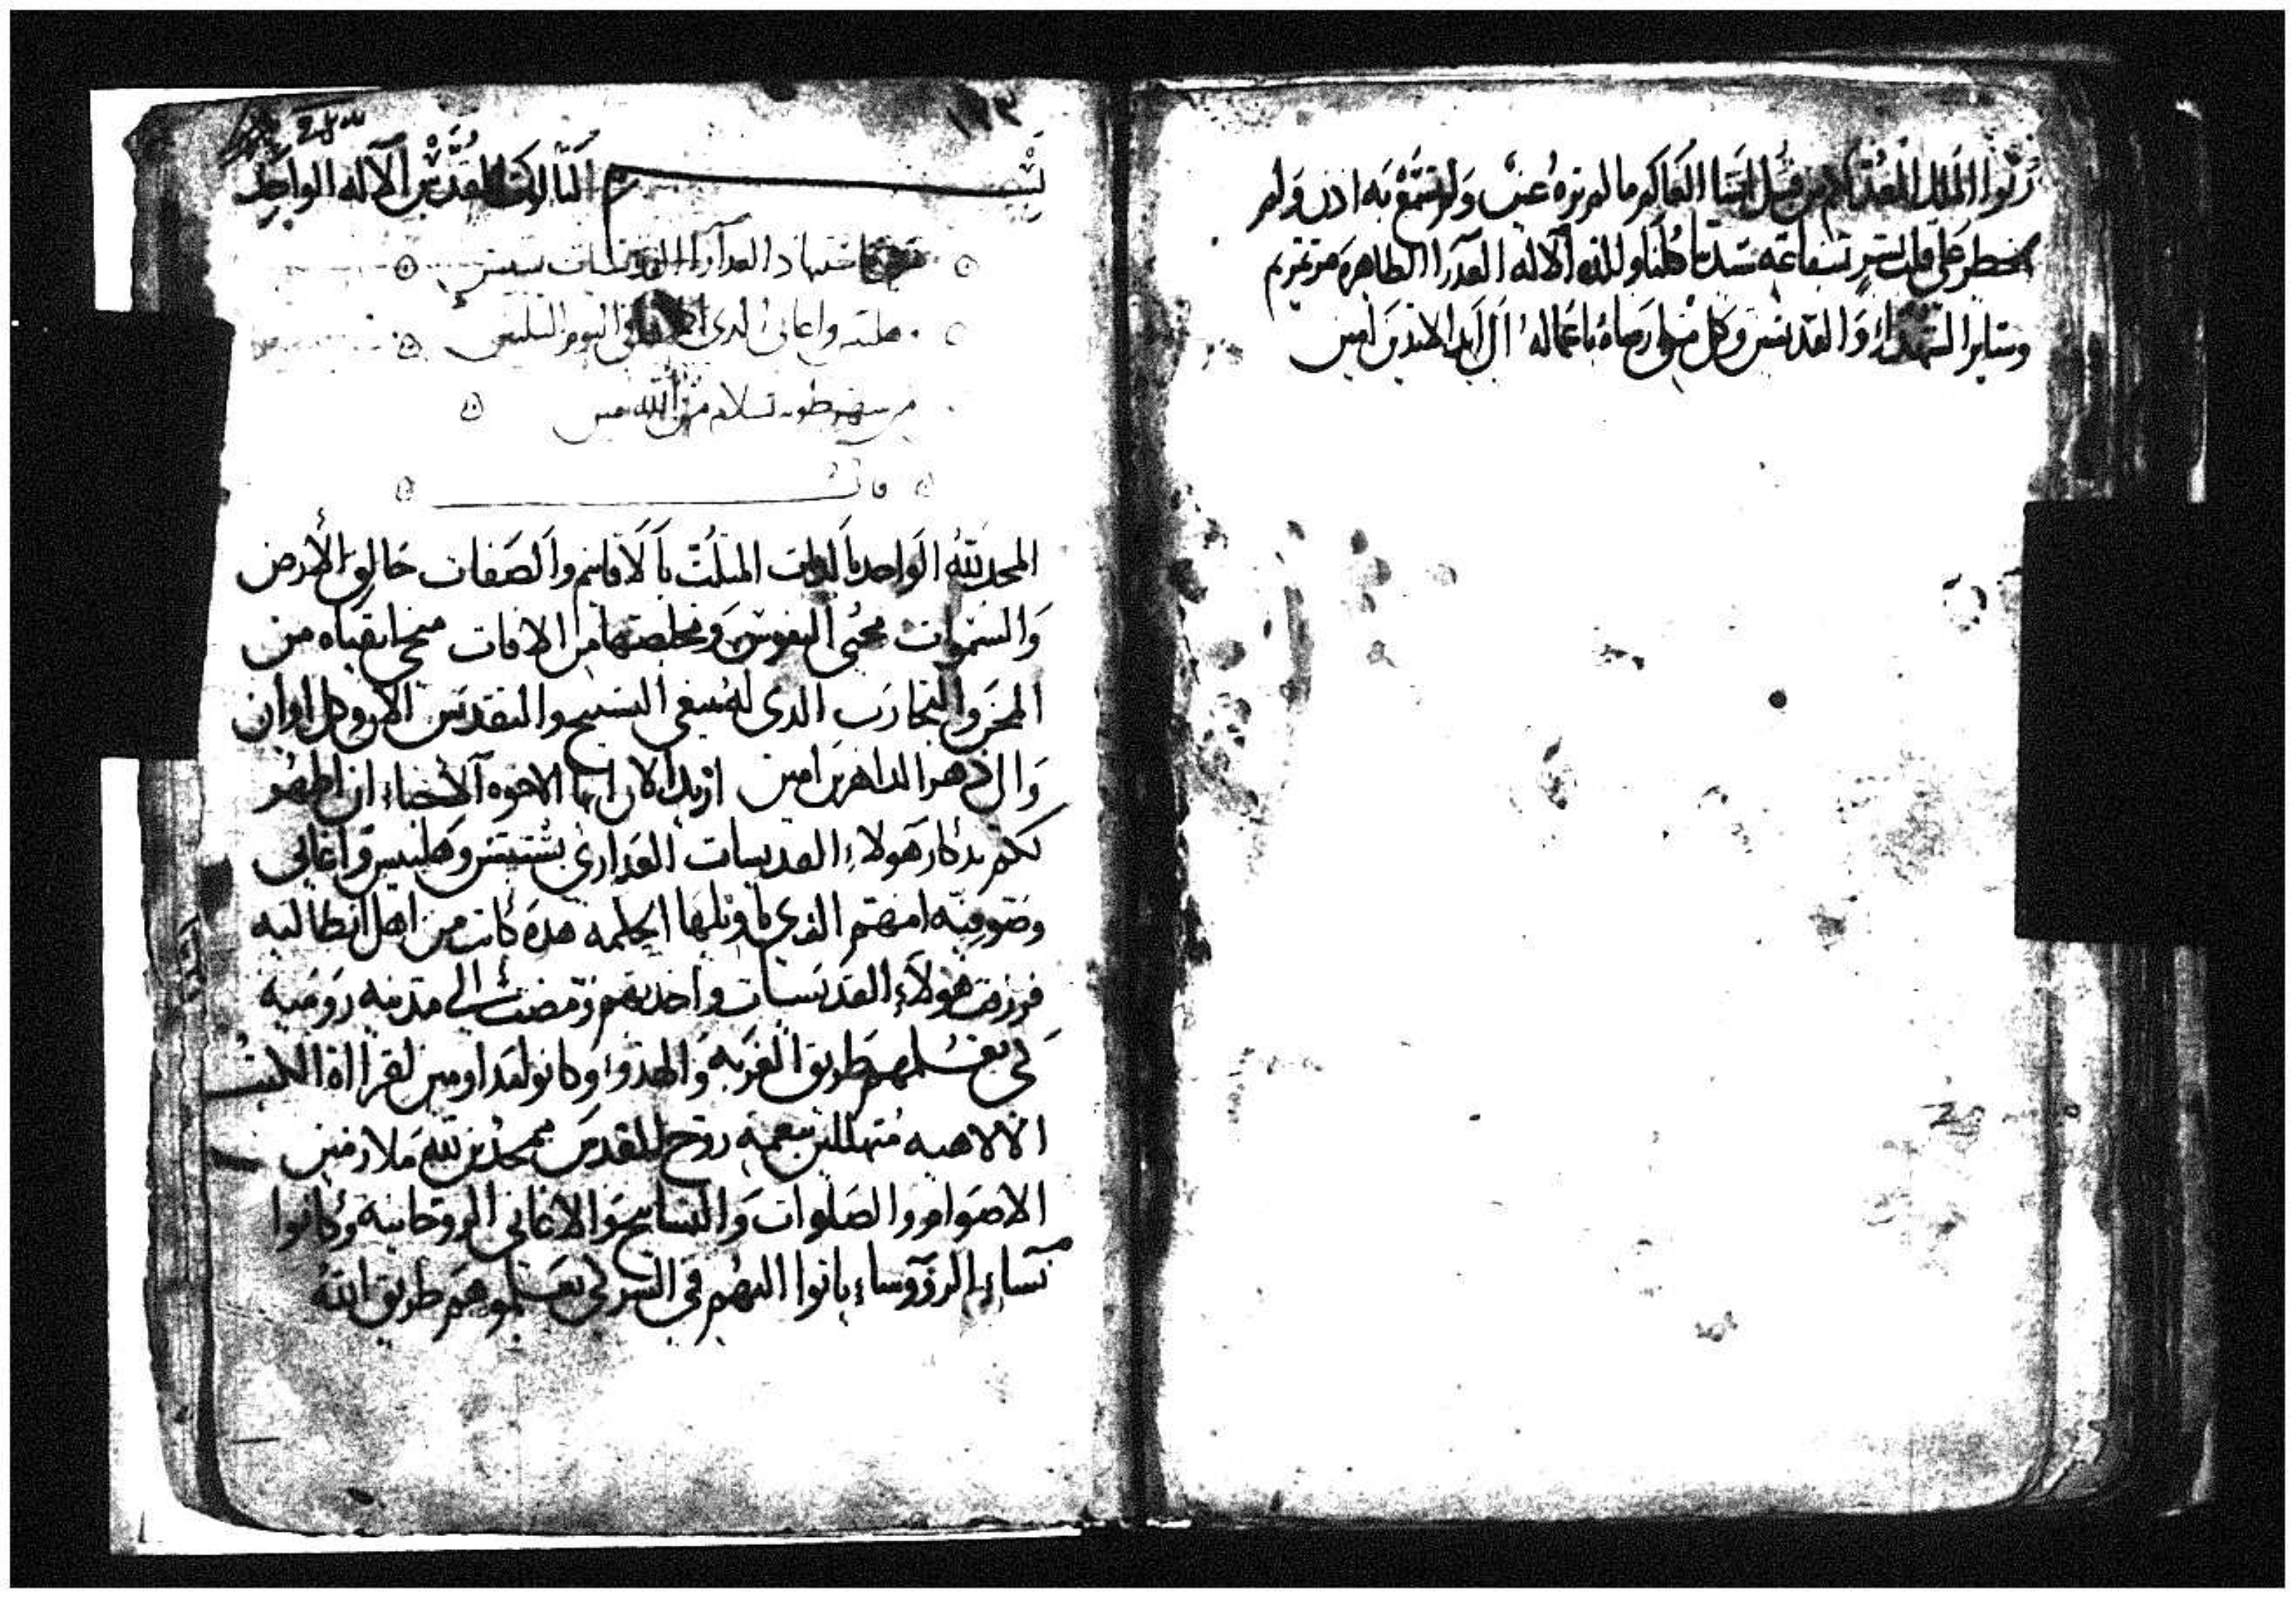 رثوا الملك المعد لكم من قبل انشا العالم ما لم تره عين ولم تسمع به اذن ولم
يخطر على قلب بشر بشفاعة ستنا كلنا والدة الاله العدرا الطاهره مرتمريم
وساير الشهداء والقديسين وكل من ارضاه باعماله الى ابد الابدين امين
١٢٣
بسم الثالوث المقدس الاله الواحد
شهاد العدارا القديسات بستس
هلبس واغابى الدى اليوم التلتين
من شهر طوبه بسلام من الله امين
قالت
المجد لله الواحد بالدات المتلت بالاقانيم والصفات خالق الارض
والسموات محيى النفوس ومخلصها من الافات منجى اتقياه من
المحن والتجارب الدى له ينبغى التسبيح والتقديس الان وكل اوان
والى دهر الداهرين امين اريد الان ايها الاخوه الاحباء ان اظهر
لكم تدكار هولاء القديسات العدارى بستس وهلبيس واغابى
وصوفيه امهم الدى تاويلها الحكمه هده كانت من اهل انطاليه
فرزقت هولاء القديسات واخدتهم ومضت الى مدينة روميه
لكى تعلمهم طريق الغربه والهدوء وكانوا مداومين لقرااة الكتب
الالاهيه متهللين بنعمة روح القدس ممجدين لله ملازمين
الاصوام والصلوات والتسابيح والاغانى الروحانيه وكانوا
نساء الرووساء ياتوا اليهم فى السر لكى يعلموهم طريق الله